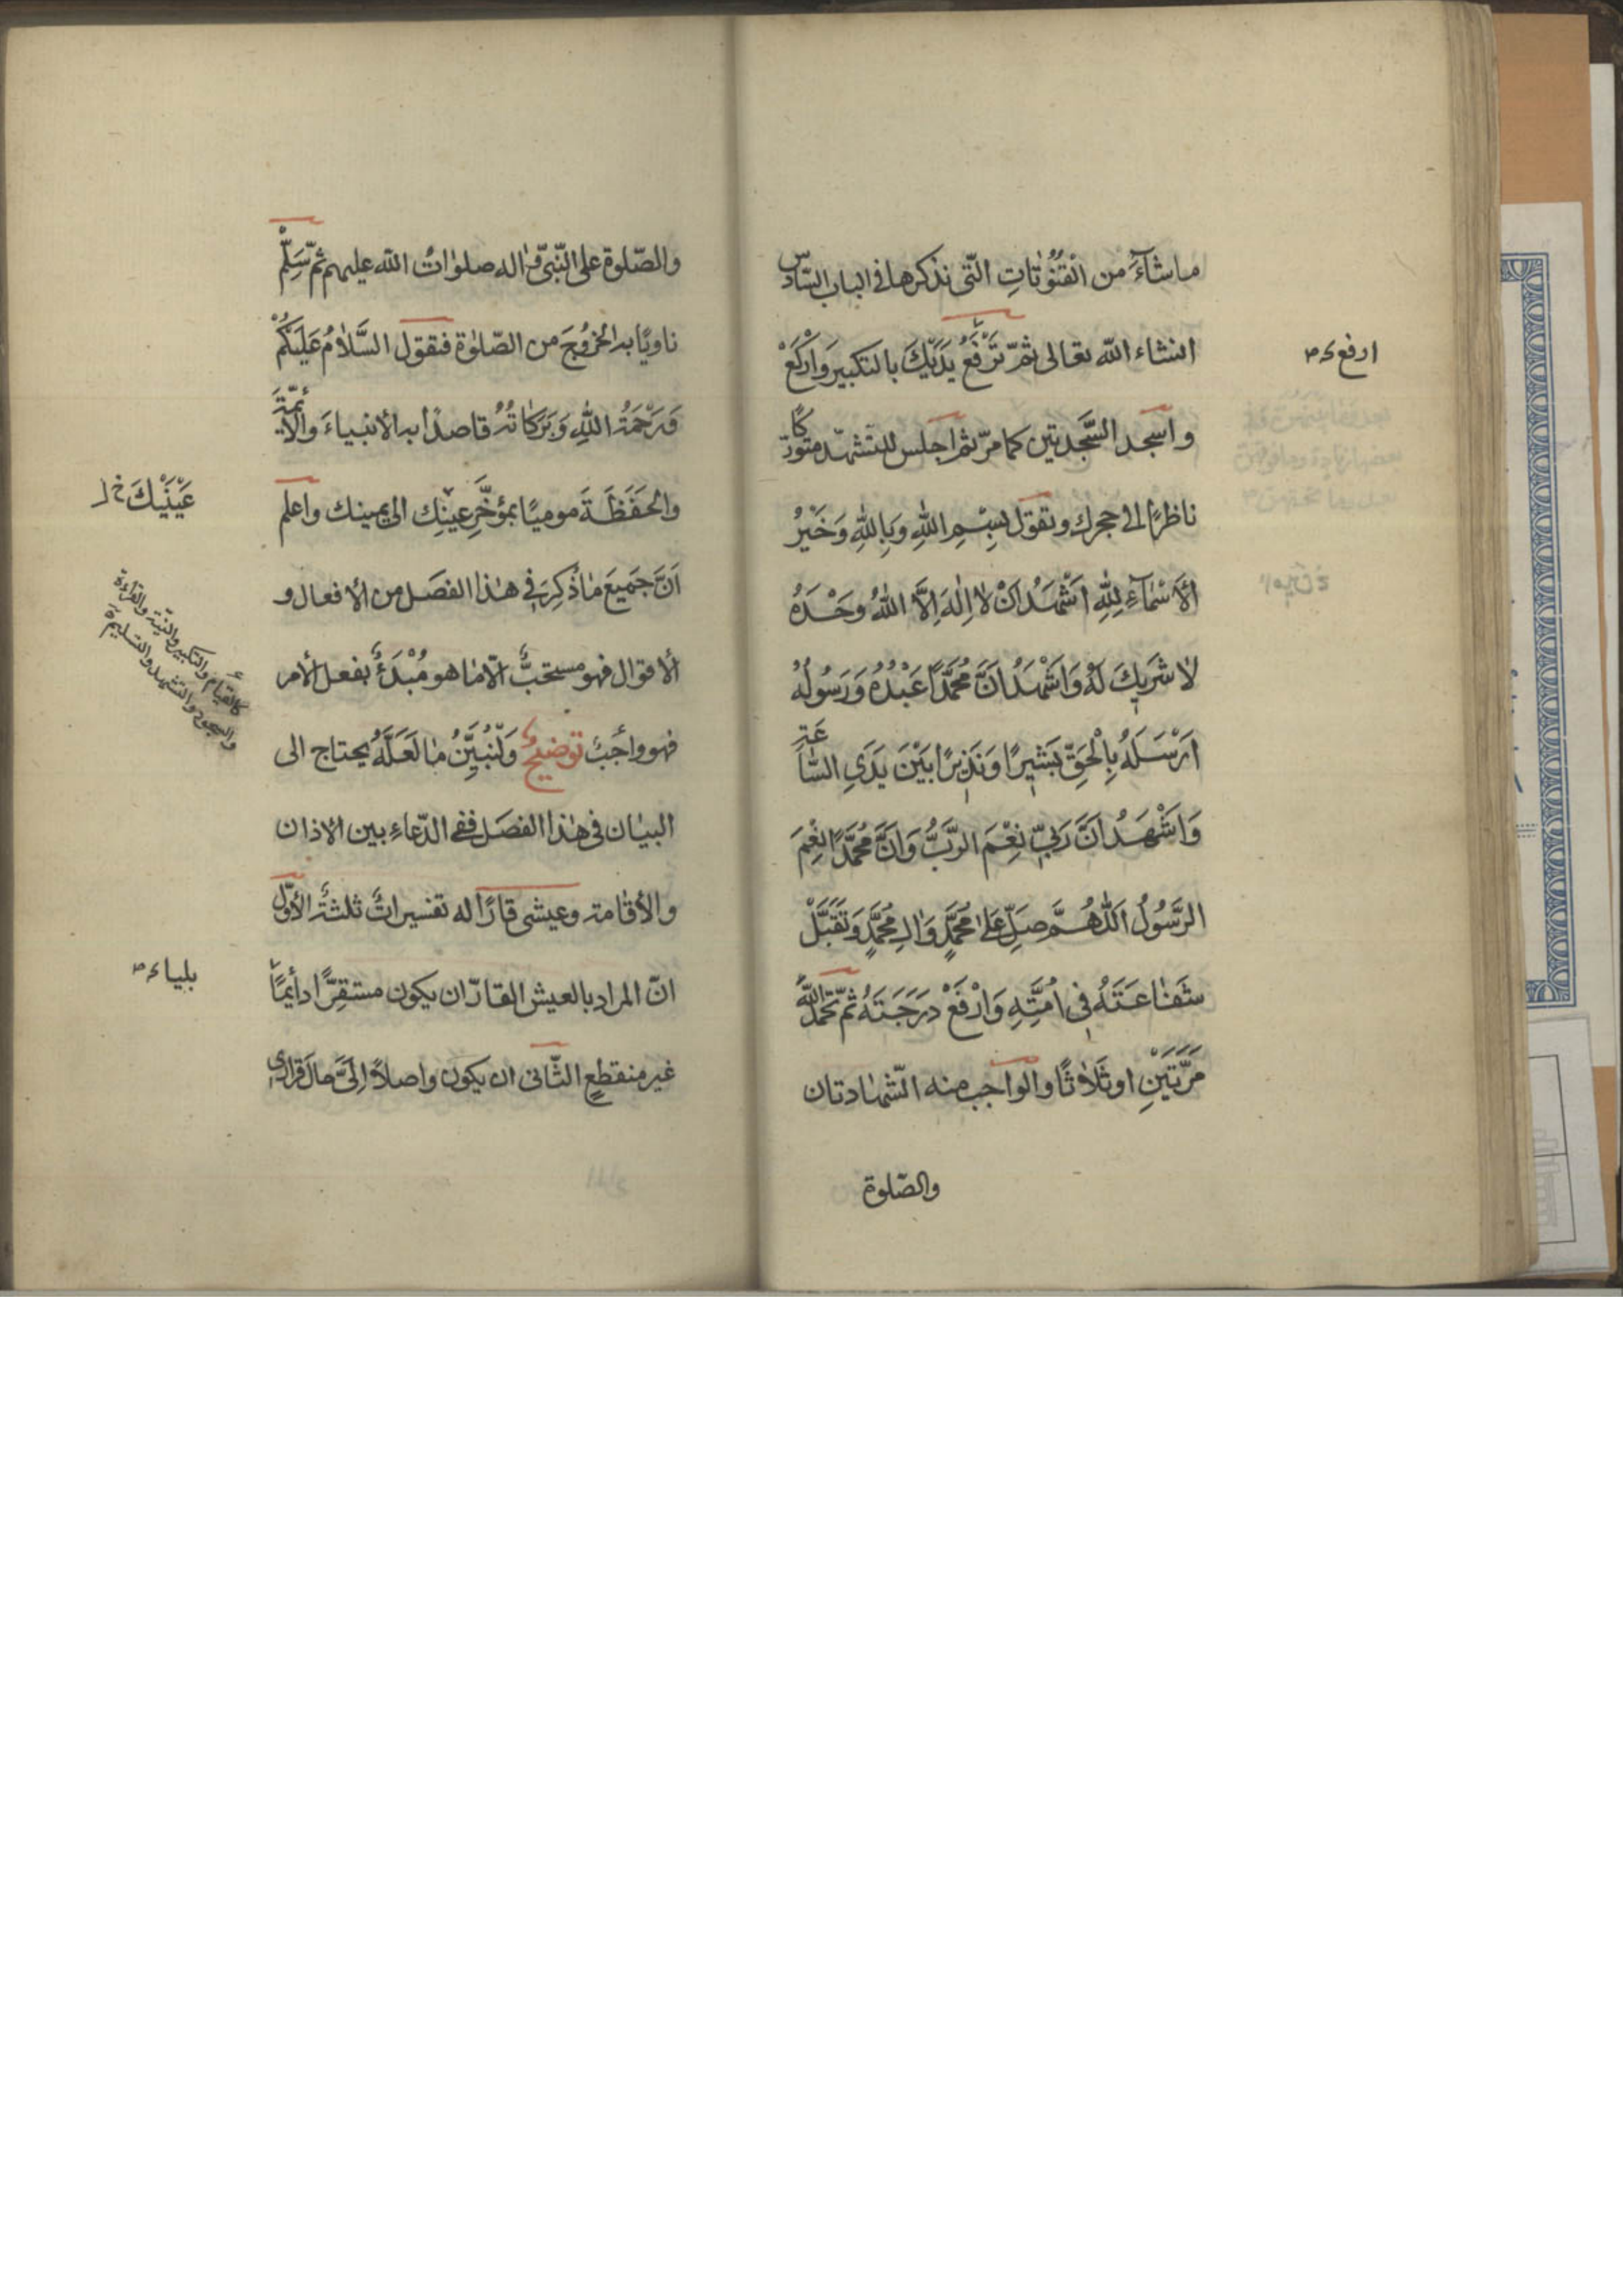 ماشآءَ من القُنُوتاتِ الّتى نذكرها فى الباب السّادس
انشاء الله تعالى ثمّ تَرْفَعُ يَدَيْكَ بالتكبير وَارْكَعْ
واسجد السَّجدتين كما مرّ ثم اجلس للتشهّد متورّكًا
ناظرًا الى حجرك وتقول بِسْمِ اللهِ وَبِاللهِ وَخَيْرُ
الْأَسْمآءِ لِلّهِ اَشْهَدُ اَنْ لا اِلٰهَ اِلَّا اللهُ وَحْدَهُ
لا شَرِيكَ لَهُ وَاَشْهَدُ اَنَّ مُحَمَّدًا عَبْدُهُ وَرَسُولُهُ
اَرْسَلَهُ بِالْحَقِّ بَشِيرًا وَنَذِيرًا بَيْنَ يَدَىِ السّاعَةِ
وَاَشْهَدُ اَنَّ رَبّى نِعْمَ الرَّبُّ وَاَنَّ مُحَمَّدًا نِعْمَ
الرَّسُولُ اَللّهُمَّ صَلِّ عَلىٰ مُحَمَّدٍ وَالِ مُحَمَّدٍ وَتَقَبَّلْ
شَفاعَتَهُ فى اُمَّتِهِ وَارْفَعْ دَرَجَتَهُ ثمّ تحمد اللهَ
مَرَّتَيْنِ او ثَلاثًا والواجب منه الشّهادتان
والصّلوة
ارفع
والصّلوة على النّبىّ واله صلواتُ الله عليهم ثمّ سَلِّمْ
ناويًا به الخُرُوجَ من الصّلوٰة فتقول السَّلامُ عَلَيْكُمْ
وَرَحْمَةُ اللهِ وَبَرَكاتُهُ قاصدًا به الأنبياءَ والائمّةَ
والحَفَظَةَ موميًا بمؤخَّرِ عينِك الى يمينك واعلم
اَنَّ جَميعَ ماذُكِرَ فى هٰذا الفصَل من الافعال و
الاقوال فهو مستحبٌّ الّا ما هو مُبْدَءٌ بفعل الأمر
فهو واجبٌ توضيحٌ وَلْنُبَيِّنْ ما لَعَلَّهُ يحتاج الى
البيان فى هٰذا الفصَل ففى الدّعاءِ بين الاذان
والأقامة وعيشى قارًّا له تفسيراتٌ ثلثةٌ الأوّل
انّ المراد بالعيش القارّ ان يكون مستقِرًّا دائمًا
غير منقطعٍ الثّانى ان يكون واصلًا اِلَىَّ حال قرارى
عَيْنَيْكَ خ ل
كالقيام والتكبير والنيّة والقراءة
والسجود والتشهد والتسليم
بلياء